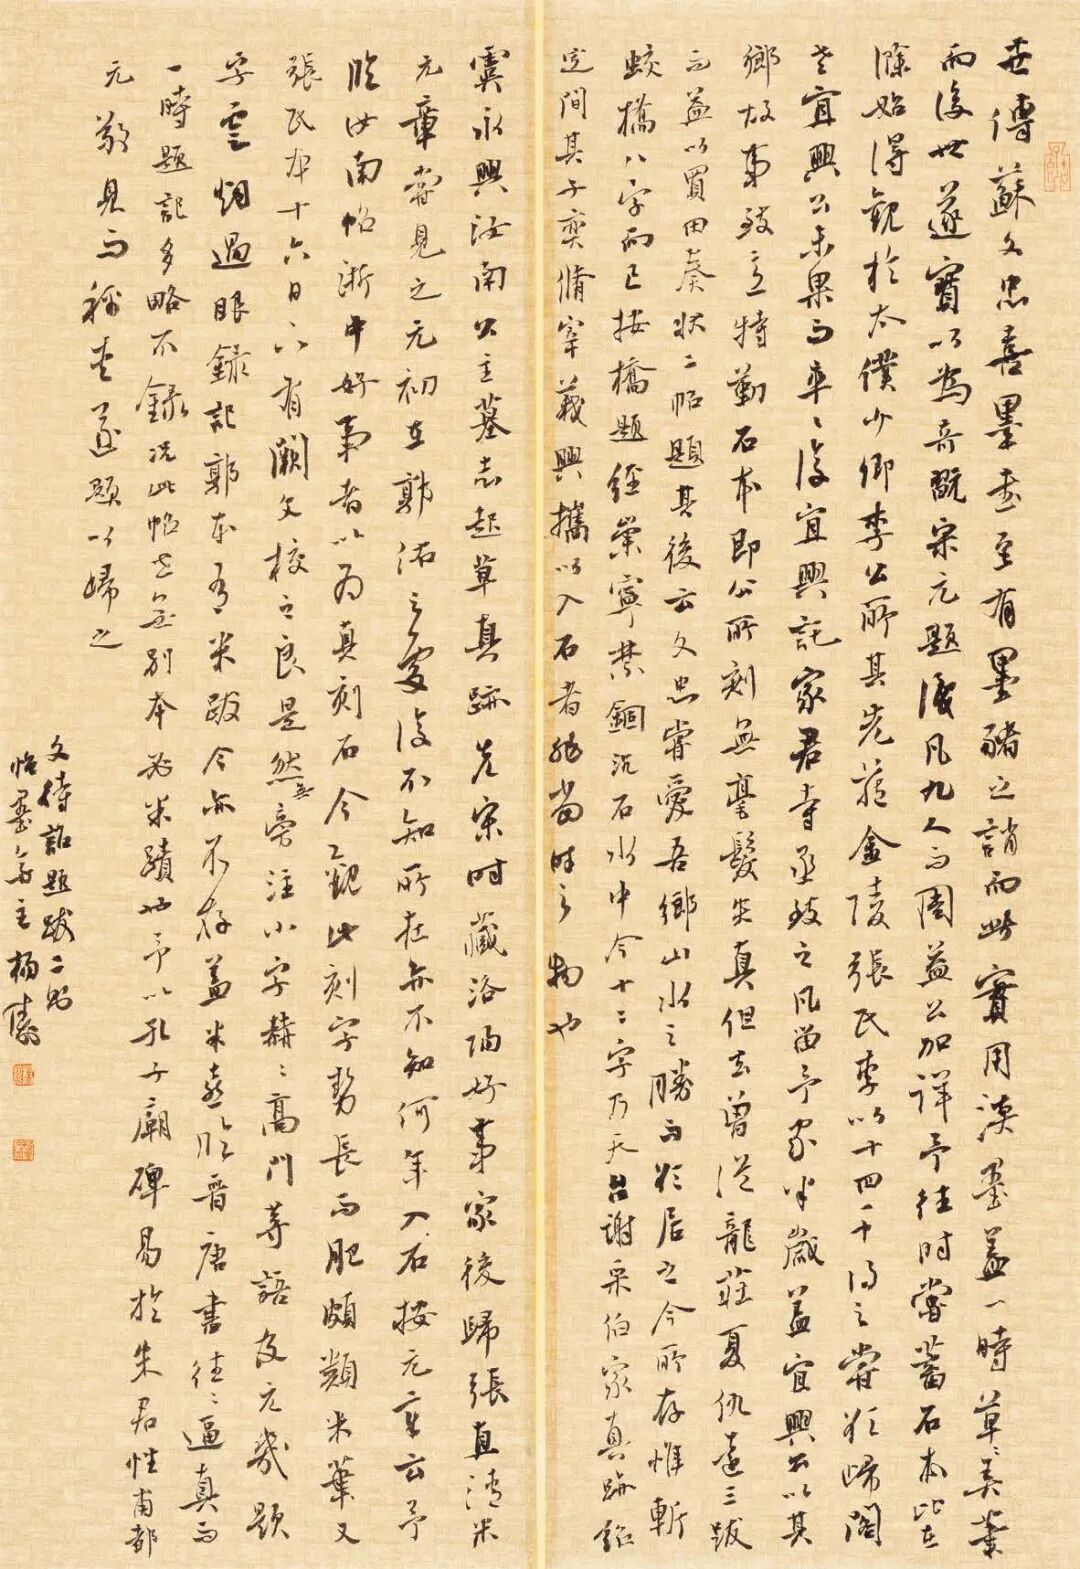 世傳蘇文忠喜墨書至有墨豬之誚而此實用淡墨蓋一時草〻弄筆
而後世遂寶以為奇翫宋元題識凡九人而周益公加詳予往時嘗蓄石本比在
滁始得觀於太僕少卿李公所其先藏金陵張氏李以十四千得之嘗欲歸閣
老宜興公未果而卒〻後宜興託家君寺丞致之凡留予家半歲蓋宜興公以其
鄉故事致之特勤石本即公所刻無毫髮失真但去曾從龍莊夏仇遠三跋
而益以買田奏狀二帖題其後云文忠嘗愛吾鄉山水之勝而欲居之今所存惟斬
蛟橋八字而已按橋題經崇寧禁錮沉石水中今十二字乃天台謝采伯家真跡紹
定間其子奕脩宰義興攜以入石者非當時之物也
虞永興汝南公主墓志起草真跡先宋時藏洛陽好事家後歸張直清米
元章嘗見之元初在郭佑之處後不知所在亦不知何年入石按元章云予
臨汝南帖浙中好事者以為真刻石今觀此刻字勢長而肥頗類米筆又
張氏本十六日下有闕文校之良是然無旁注小字赫〻高門等語及元幾題
字雲烟過眼錄記郭本有米跋今亦不存蓋米喜臨晉唐書往〻逼真而
一時題記多略不錄況此帖世無別本必米蹟也予以孔子廟碑易於朱君性甫都
元敬見而稱遂題以歸之
文待詔題跋二則
怡墨齋主楊濤